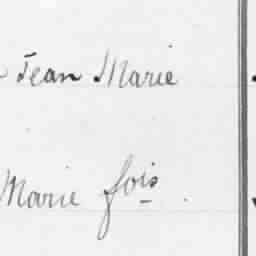 Jean Marie
Marie fois